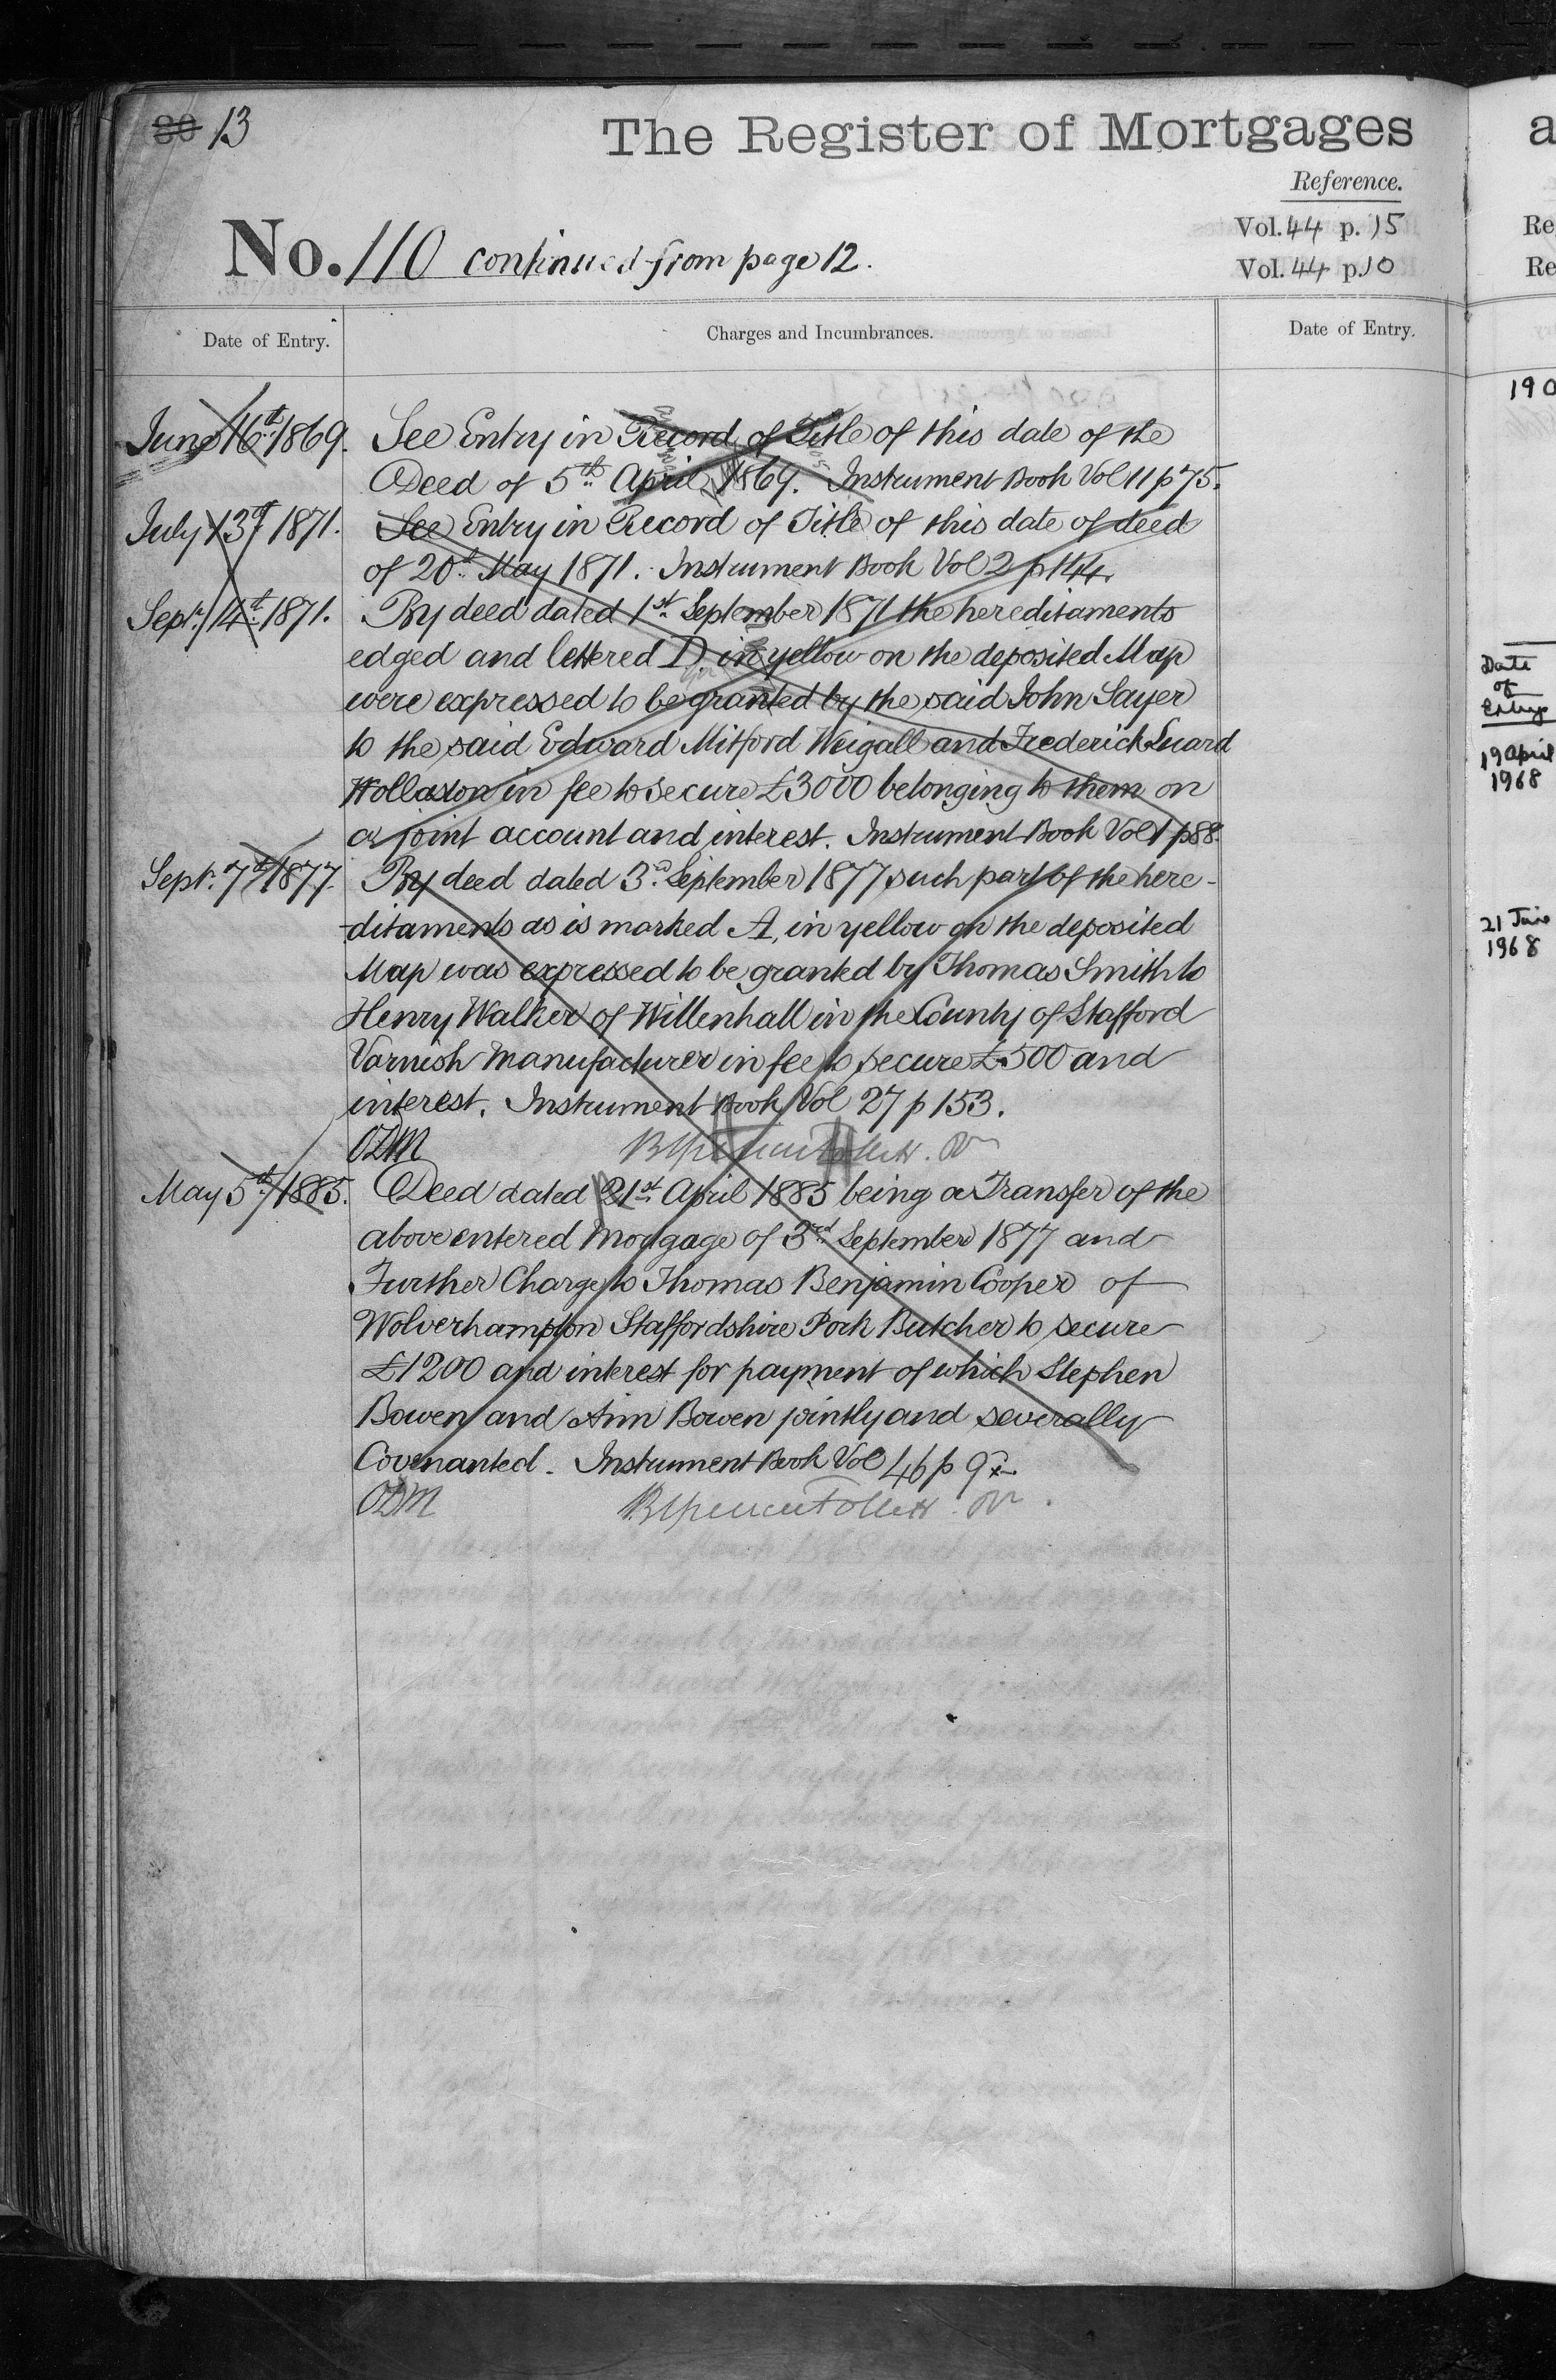 80 13
The Register of Mortgages
Reference.
Vol. 44 p. 15
No. 110 continued from page 12.
Vol. 44 p. 10
Date of Entry.
Charges and Incumbrances.
Date of Entry.
June 16th 1869. See Entry in Record of Title of this date of the
Deed of 5th April 1869. Instrument Book Vol 11 p 75.
July 13th 1871. See Entry in Record of Title of this date of deed
of 20th May 1871. Instrument Book Vol 2 p 144.
Septr. 14th 1871. By deed dated 1st September 1871 the hereditaments
edged and lettered D, in yellow on the deposited Map
were expressed to be granted by the said John Sayer
to the said Edward Mitford Weigall and Frederick Luard
Wollaston in fee to secure £3000 belonging to them on
a joint account and interest. Instrument Book Vol 1 p 88.
Septr. 7th 1877. By deed dated 3rd September 1877 such part of the here-
-ditaments as is marked A, in yellow on the deposited
Map was expressed to be granted by Thomas Smith to
Henry Walker of Willenhall in the County of Stafford
Varnish Manufacturer in fee to secure £500 and
interest. Instrument Book Vol 27 p 153.
ODM
May 5th 1885. Deed dated 21st April 1885 being a Transfer of the
above entered Mortgage of 3rd September 1877 and
Further Charge to Thomas Benjamin Cooper of
Wolverhampton Staffordshire Pork Butcher to secure
£1200 and interest for payment of which Stephen
Bowen and Ann Bowen jointly and severally
Covenanted. Instrument Book Vol 46 p 9
ODM
a
Re
Re
190
Date
of
Entry
19 April
1968
21 June
1968